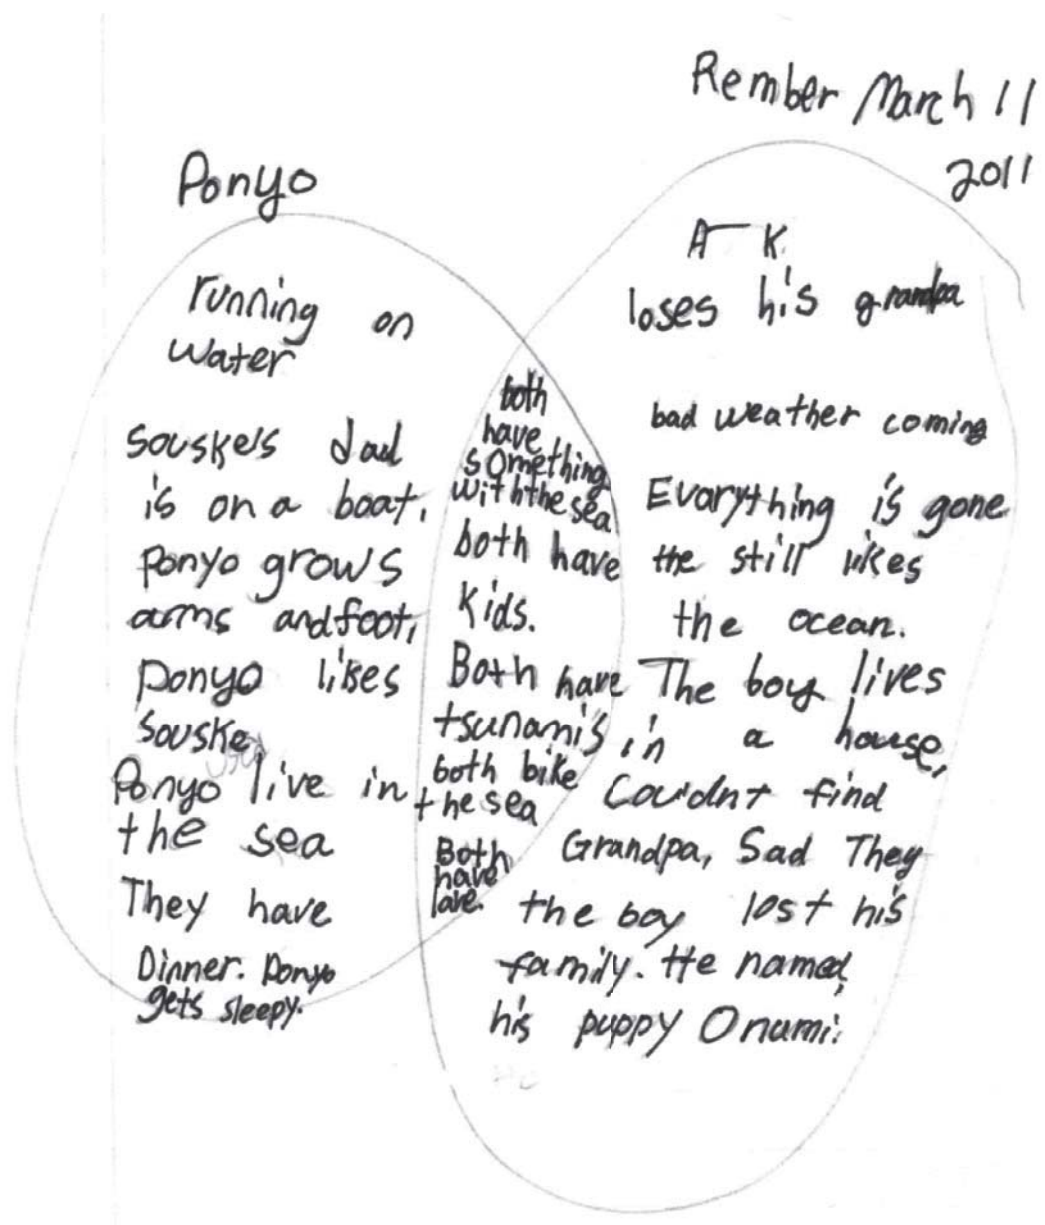 Rember March 11
2011
Ponyo
running on
water
souske's dad
is on a boat,
Ponyo grows
arms and foot,
ponyo likes
souske
Ponyo live in
the sea
They have
Dinner. Ponyo
gets sleepy.
both
have
something
with the sea
both have
kids.
Both have
tsunamis
both bike
the sea
Both
have
A K.
loses his grandpa
bad weather coming
Evarything is gone
He still likes
the ocean.
The boy lives
in a house,
Couldnt find
Grandpa, Sad They
the boy lost his
family. He named
his puppy Onami.